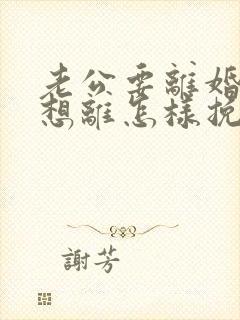 老公要離婚
想離怎樣挽
謝芳